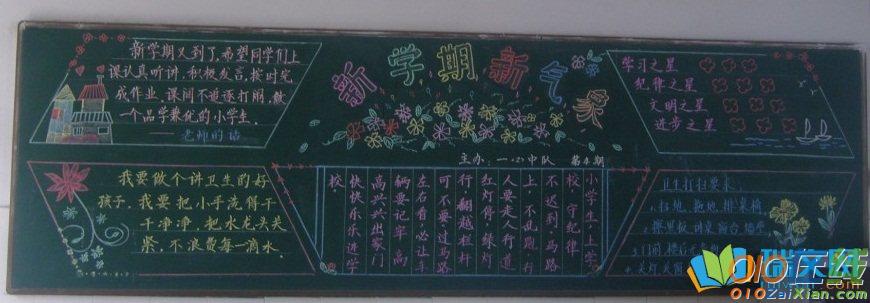 新学期又到了,希望同学们上
课认真听讲.积极发言,按时完
成作业.课间不追逐打闹,做
一个品学兼优的小学生。
——老师的话
新学期新气象
主办:一(2)中队 第4期
学习之星
纪律之星
文明之星
进步之星
我要做个讲卫生的好
孩子,我要把小手洗得干
干净净,把水龙头关
紧,不浪费每一滴水
小学生,上学
校,守纪律
不迟到.马路
上,不乱跑.行
人要走人行道
红灯停,绿灯
行.翻越栏杆
可不要,过马路
左右看,必让车
辆要记牢,高
高兴兴出家门
快快乐乐进学
校。
卫生打扫要求:
1.扫地、拖地、排桌椅
2.擦黑板、讲桌、窗台、墙壁
3.门前
4.关灯、关窗
010在线
010ZaiXian.com